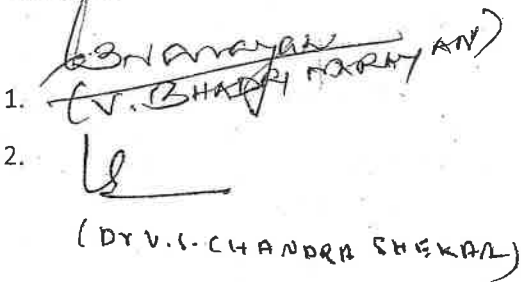 1.
(V. BHADRI NARAYAN)
2.
(Dr V.S. CHANDRA SHEKAR)